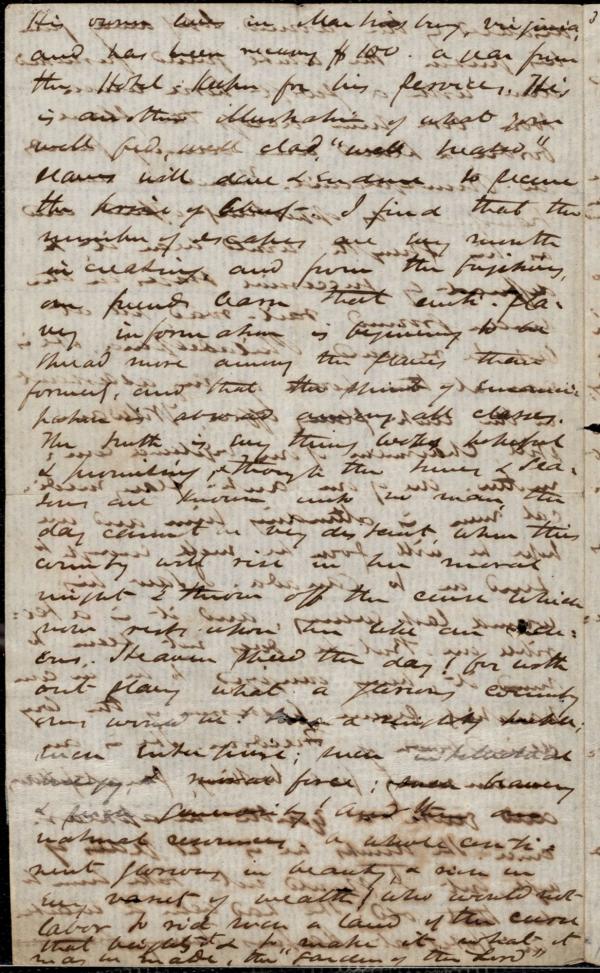 His owner lives in Martinsburg, Virginia,
and has been receiving $100. a year from
the Hotel-keeper for his services. This
is another illustration of what your
well fed, well clad, "well treated"
slaves will dare & endure to secure
the of I find that the
number of escapes are every month
increasing and from the fugitives,
our friends learn that anti-Sla-
very information is beginning to be
spread more among the slaves than
formerly, and that the spirit of emanci-
pation is abroad among all classes.
The truth is every thing looks hopeful
& promising, & though the times & sea-
sons are known unto no man, the
day cannot be very distant, when this
country will rise in her moral
might & throw off the curse which
now rests upon her like an
Heaven speed the day! for with
out slavery what a glorious country
ours would be! a mighty
enterprise; such intellectual
energy & moral force; such bravery
& generosity! and then our
natural resources, a whole conti-
nent glorious in beauty, & rich in
every variety of wealth! who would not
labor to rid such a land of the curse
that blights it & to make it what it
was made, the "Garden of the Lord"
3